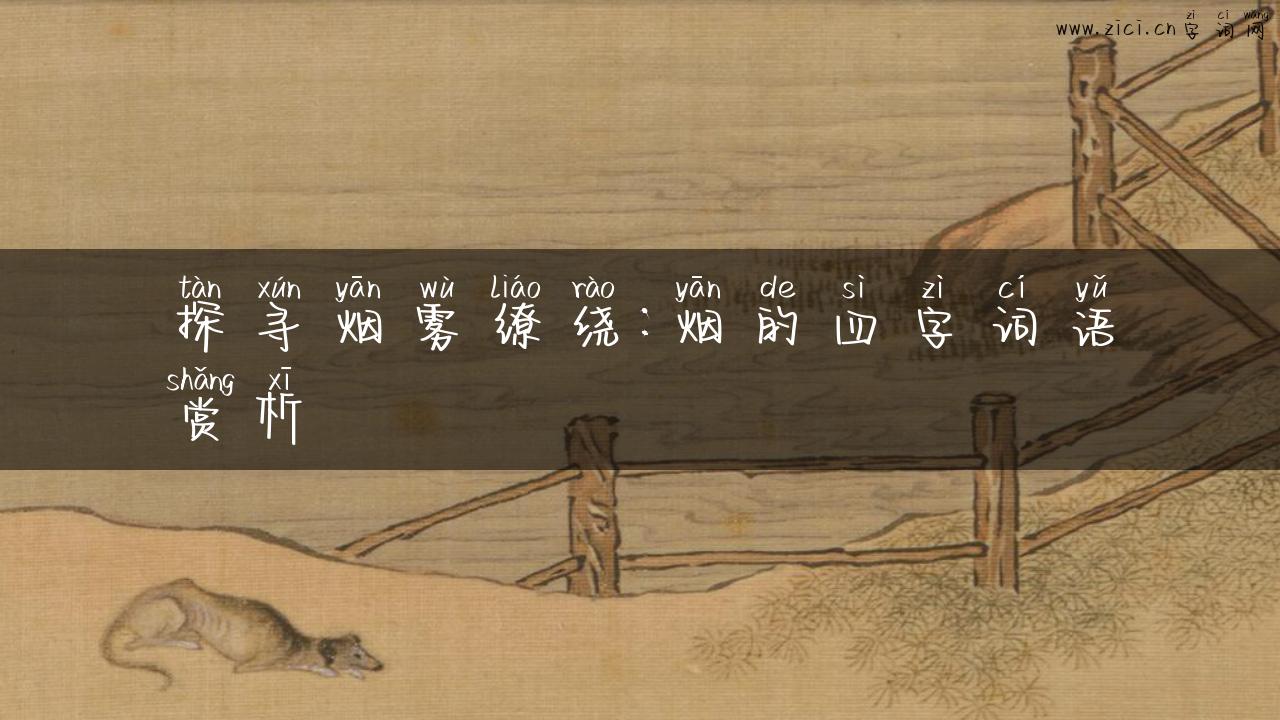 zì cí wǎng
www.zici.cn 字词网
tàn xún yān wù liáo rào yān de sì zì cí yǔ
探寻烟雾缭绕：烟的四字词语
shǎng xī
赏析